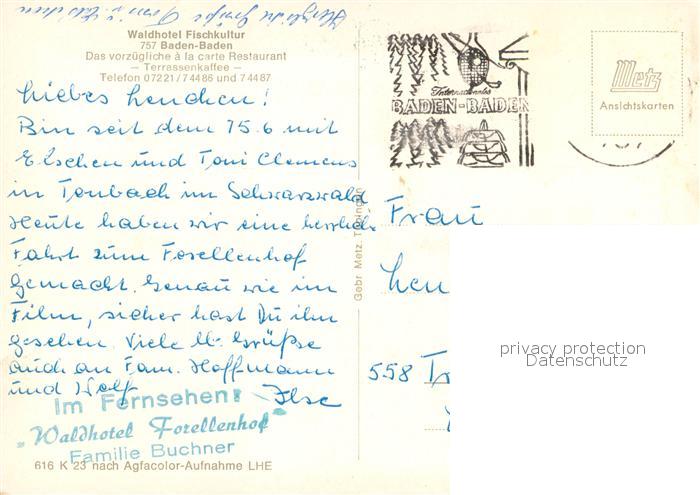 Herzliche Grüße Toni u. Elschen
Waldhotel Fischkultur
757 Baden-Baden
Das vorzügliche à la carte Restaurant
— Terrassenkaffee —
Telefon 07221/74486 und 74487
Liebes Lenchen!
Bin seit dem 15.6 mit
Elschen und Toni Clemens
in Tonbach im Schwarzwald
Heute haben wir eine herrlich.
Fahrt zum Forellenhof
gemacht. Genau wie im
Film, sicher hast Du ihn
gesehen. Viele ll. Grüße
auch an Fam. Hoffmann
und Wolf
Ilse
Im Fernsehen:
"Waldhotel Forellenhof"
Familie Buchner
616 K 23 nach Agfacolor-Aufnahme LHE
Gebr. Metz, Tübingen
Internationales
BADEN-BADEN
Metz
Ansichtskarten
Frau
Len
558 Tr
privacy protection
Datenschutz